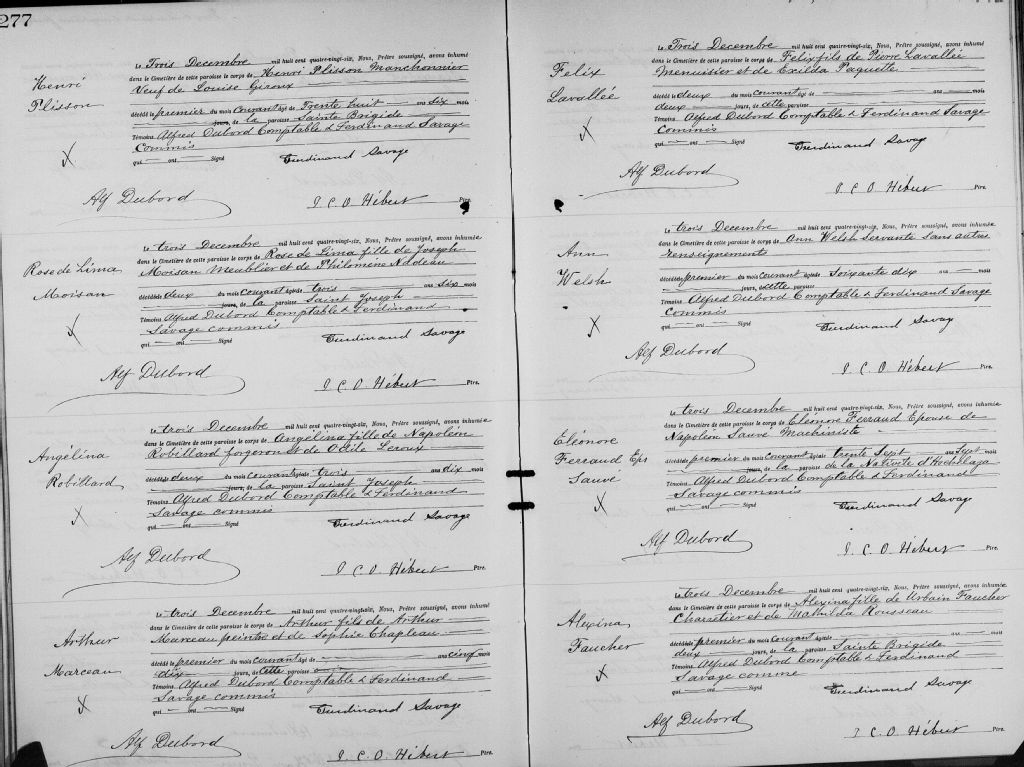 277
Henri
Plisson
Le Trois Decembre mil huit cent quatre-vingt-six, Nous, Prêtre soussigné, avons inhumé
dans le Cimetière de cette paroisse le corps de Henri Plisson Manchonnier
Veuf de Louise Giroux
décédé le premier du mois Courant âgé de Trente huit ans Six mois
jours, de la paroisse Sainte Brigide
Témoins Alfred Dubord Comptable & Ferdinand Savage
Commis
qui — ont — Signé Ferdinand Savage
Alf Dubord
J. C. O. Hébert Ptre.
Rose de Lima
Moisan
Le trois Decembre mil huit cent quatre-vingt-six, Nous, Prêtre soussigné, avons inhumée
dans le Cimetière de cette paroisse le corps de Rose de Lima fille de Joseph
Moisan Meublier et de Philomène Nadeau
décédée deux du mois Courant âgée de trois ans Six mois
jours, de la paroisse Saint Joseph
Témoins Alfred Dubord Comptable & Ferdinand
Savage commis
qui — ont — Signé Ferdinand Savage
Alf Dubord
J. C. O. Hébert Ptre.
Angélina
Robillard
Le trois Decembre mil huit cent quatre-vingt-six, Nous, Prêtre soussigné, avons inhumée
dans le Cimetière de cette paroisse le corps de Angélina fille de Napoléon
Robillard forgeron et de Odile Leroux
décédée deux du mois Courant âgée de trois ans dix mois
jours, de la paroisse Saint Joseph
Témoins Alfred Dubord Comptable & Ferdinand
Savage commis
qui — ont — Signé Ferdinand Savage
Alf Dubord
J. C. O. Hébert Ptre.
Arthur
Marceau
Le trois Decembre mil huit cent quatre-vingt-six, Nous, Prêtre soussigné, avons inhumé
dans le Cimetière de cette paroisse le corps de Arthur fils de Arthur
Marceau peintre et de Sophie Chapleau
décédé le premier du mois courant âgé de — ans cinq mois
dix jours, de cette paroisse
Témoins Alfred Dubord Comptable & Ferdinand
Savage commis
qui — ont — Signé Ferdinand Savage
Alf Dubord
J. C. O. Hébert Ptre.
Felix
Lavallée
Le Trois Decembre mil huit cent quatre-vingt-six, Nous, Prêtre soussigné, avons inhumé
dans le Cimetière de cette paroisse le corps de Felix fils de Pierre Lavallée
Menuisier et de Exilda Paquette
décédé deux du mois Courant âgé de — ans — mois
deux jours, de cette paroisse
Témoins Alfred Dubord Comptable & Ferdinand Savage
Commis
qui — ont — Signé Ferdinand Savage
Alf Dubord
J. C. O. Hébert Ptre.
Ann
Welsh
Le trois Decembre mil huit cent quatre-vingt-six, Nous, Prêtre soussigné, avons inhumée
dans le Cimetière de cette paroisse le corps de Ann Welsh Servante Sans autres
renseignements
décédée premier du mois Courant âgée de Soixante dix ans — mois
jours, de cette paroisse
Témoins Alfred Dubord Comptable & Ferdinand Savage
Commis
qui — ont — Signé Ferdinand Savage
Alf Dubord
J. C. O. Hébert Ptre.
Eléonore
Ferraud Eps
Sauvé
Le trois Decembre mil huit cent quatre-vingt-six, Nous, Prêtre soussigné, avons inhumée
dans le Cimetière de cette paroisse le corps de Eléonore Ferraud Epouse de
Napoleon Sauvé Machiniste
décédée premier du mois Courant âgée de trente Sept ans Sept mois
jours, de la paroisse de la Nativité d'Hochelaga
Témoins Alfred Dubord Comptable & Ferdinand
Savage commis
qui — ont — Signé Ferdinand Savage
Alf Dubord
J. C. O. Hébert Ptre.
Alexina
Faucher
Le Trois Decembre mil huit cent quatre-vingt-six, Nous, Prêtre soussigné, avons inhumée
dans le Cimetière de cette paroisse le corps de Alexina fille de Urbain Faucher
Charretier et de Mathilda Rousseau
décédée premier du mois Courant âgée de — ans — mois
deux jours, de la paroisse Sainte Brigide
Témoins Alfred Dubord Comptable & Ferdinand
Savage comme
qui — ont — Signé Ferdinand Savage
Alf Dubord
J. C. O. Hébert Ptre.